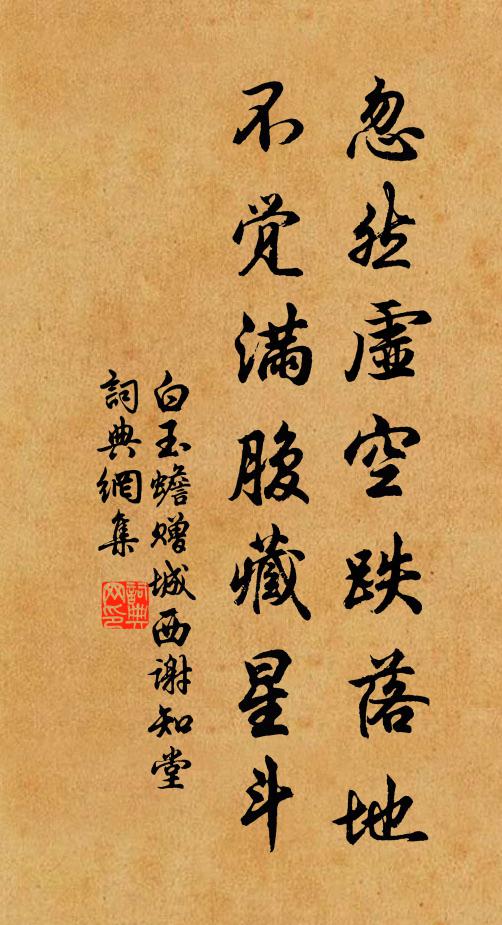 忽然虛空跌落地
不觉滿腹藏星斗
白玉蟾赠城西谢知堂
詞典網集
詞典网印